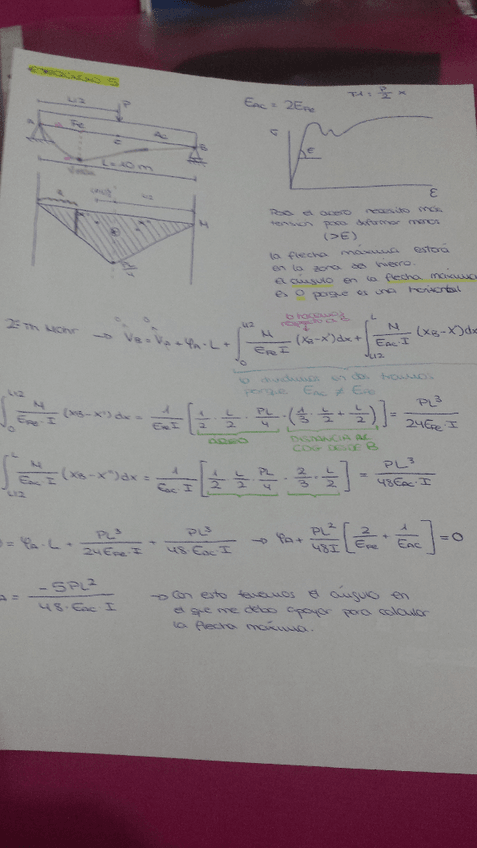 EJERCICIO 5
L/2
P
A
Fe
Ac
B
C
L=10 m
E_AC = 2E_Fe
M = P/2 x
σ
E
ε
M
PL/4
Para el acero necesito más
tensión para deformar menos
(>E)
la flecha máxima estará
en la zona del hierro.
el ángulo en la flecha máxima
es 0 porque es una horizontal
2º Th Mohr → V_B = V_A + φ_A · L + ∫_0^{L/2} M/(E_Fe I) (x_B - x')dx + ∫_{L/2}^{L} M/(E_AC · I) (x_B - x")dx
lo hacemos respecto a B
lo dividimos en dos tramos
porque E_AC ≠ E_Fe
∫_0^{L/2} M/(E_Fe · I) (x_B - x')dx = 1/(E_Fe I) [1/2 · L/2 · PL/4 · (1/3 · L/2 + L/2)] = PL³/(24E_Fe · I)
ÁREA
DISTANCIA AL
CDG DESDE B
∫_{L/2}^{L} M/(E_AC · I) (x_B - x")dx = 1/(E_AC I) [1/2 · L/2 · PL/4 · 2/3 · L/2] = PL³/(48E_AC · I)
= φ_A · L + PL³/(24E_Fe · I) + PL³/(48 · E_AC · I) → φ_A + PL²/(48I) [2/E_Fe + 1/E_AC] = 0
= -5PL²/(48 · E_AC · I) → Con esto tenemos el ángulo en
el que me debo apoyar para calcular
la flecha máxima.